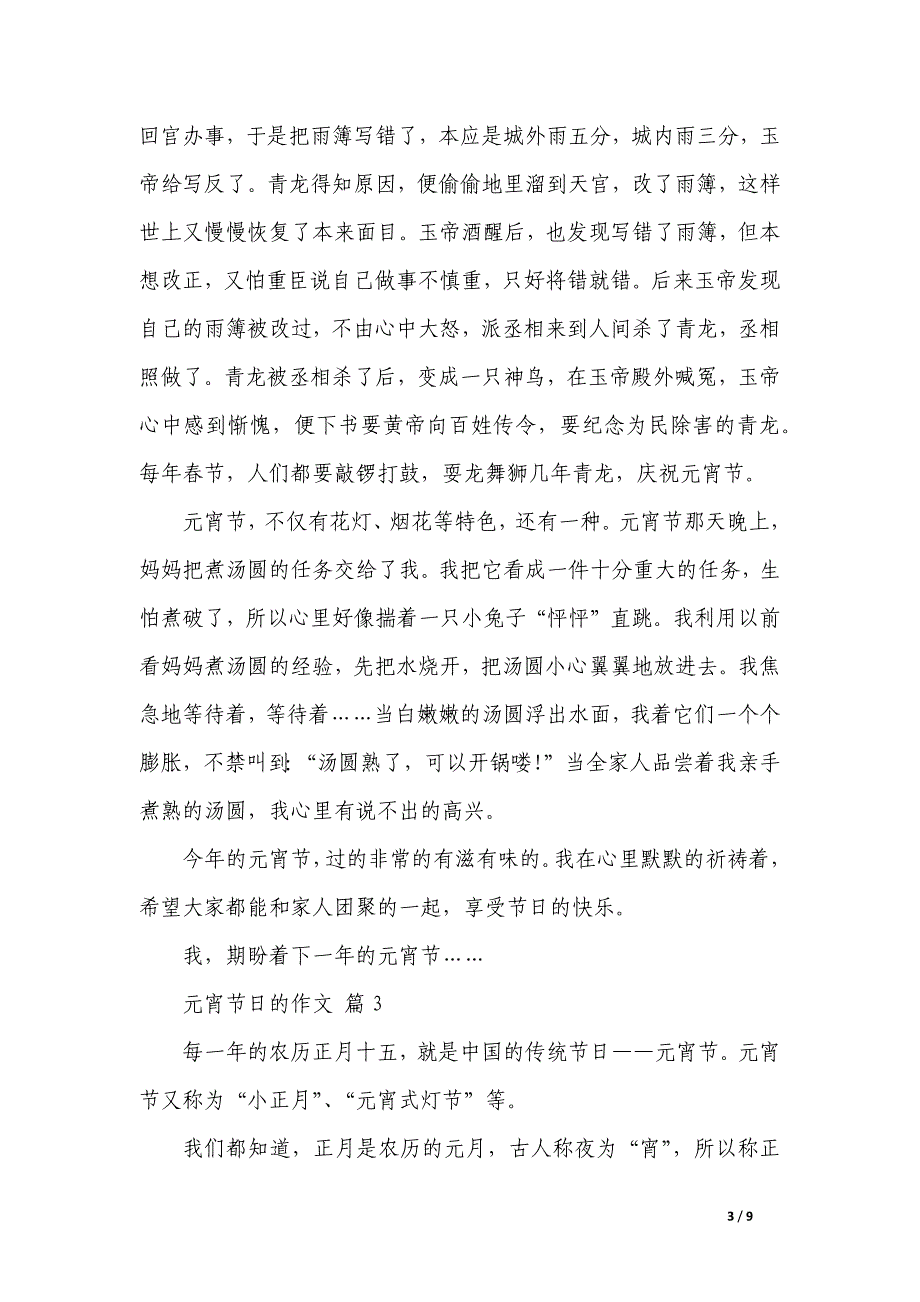 回宫办事，于是把雨簿写错了，本应是城外雨五分，城内雨三分，玉
帝给写反了。青龙得知原因，便偷偷地里溜到天宫，改了雨簿，这样
世上又慢慢恢复了本来面目。玉帝酒醒后，也发现写错了雨簿，但本
想改正，又怕重臣说自己做事不慎重，只好将错就错。后来玉帝发现
自己的雨簿被改过，不由心中大怒，派丞相来到人间杀了青龙，丞相
照做了。青龙被丞相杀了后，变成一只神鸟，在玉帝殿外喊冤，玉帝
心中感到惭愧，便下书要黄帝向百姓传令，要纪念为民除害的青龙。
每年春节，人们都要敲锣打鼓，耍龙舞狮几年青龙，庆祝元宵节。
元宵节，不仅有花灯、烟花等特色，还有一种。元宵节那天晚上，
妈妈把煮汤圆的任务交给了我。我把它看成一件十分重大的任务，生
怕煮破了，所以心里好像揣着一只小兔子“怦怦”直跳。我利用以前
看妈妈煮汤圆的经验，先把水烧开，把汤圆小心翼翼地放进去。我焦
急地等待着，等待着……当白嫩嫩的汤圆浮出水面，我着它们一个个
膨胀，不禁叫到：“汤圆熟了，可以开锅喽！”当全家人品尝着我亲手
煮熟的汤圆，我心里有说不出的高兴。
今年的元宵节，过的非常的有滋有味的。我在心里默默的祈祷着，
希望大家都能和家人团聚的一起，享受节日的快乐。
我，期盼着下一年的元宵节……
元宵节日的作文 篇 3
每一年的农历正月十五，就是中国的传统节日——元宵节。元宵
节又称为“小正月”、“元宵式灯节”等。
我们都知道，正月是农历的元月，古人称夜为“宵”，所以称正
3 / 9